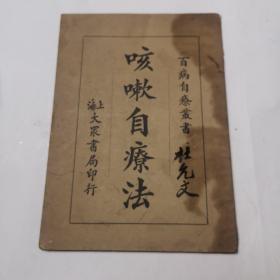 百病自療叢書
杜允文
咳嗽自療法
上海大眾書局印行